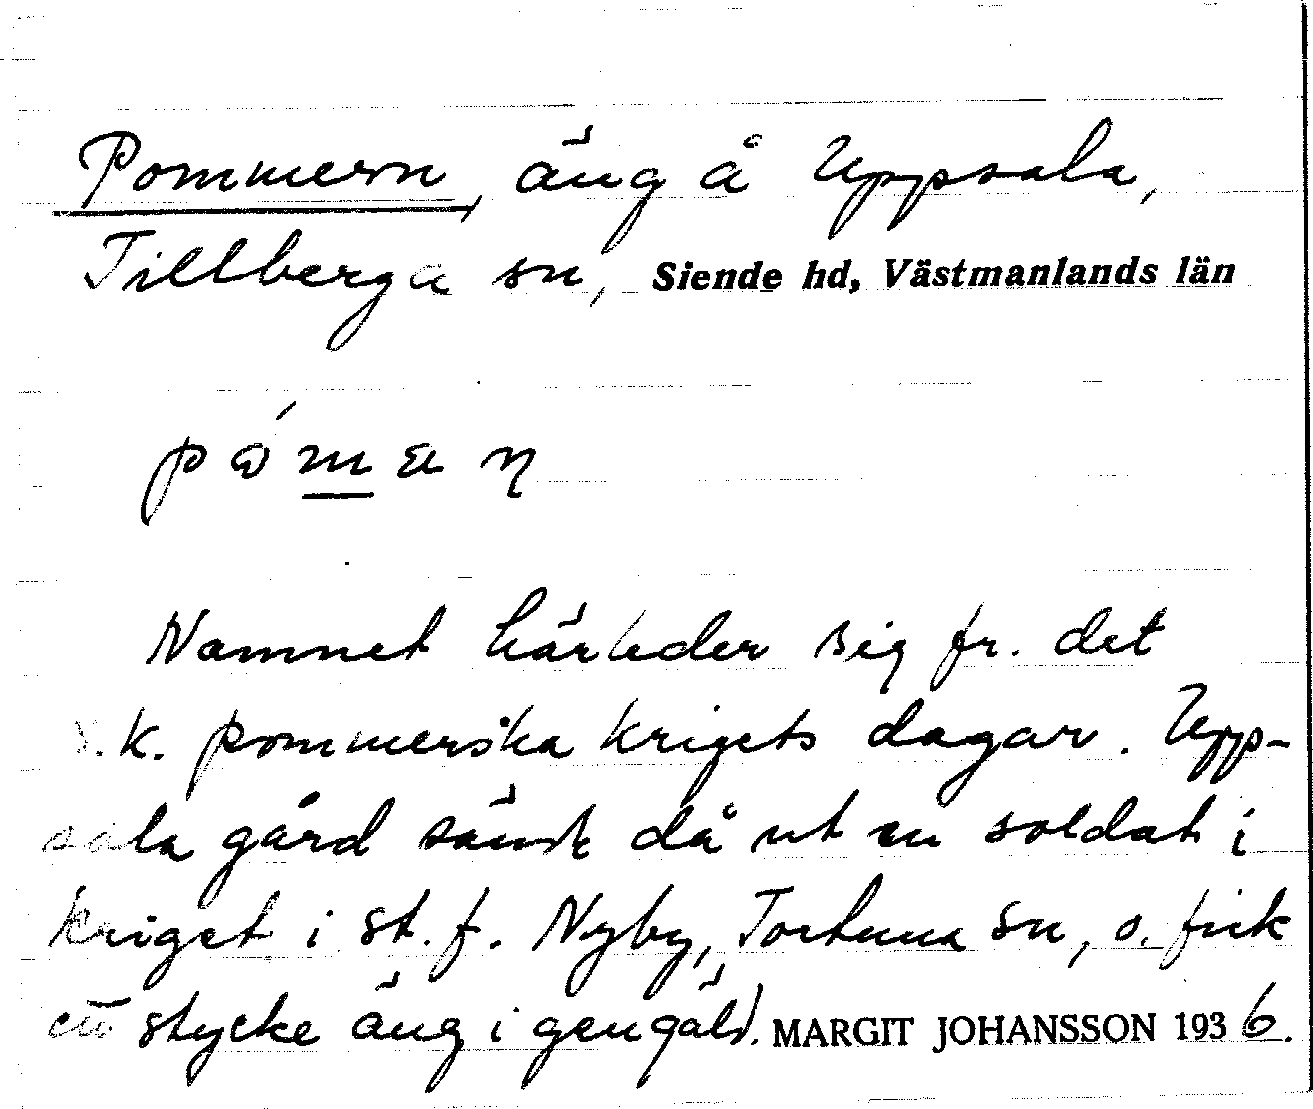 Pommern, äng å Uppsala,
Tillberga sn, Siende hd, Västmanlands län
pòman
Namnet härleder sig fr. det
s.k. pommerska krigets dagar. Upp-
sala gård sände då ut en soldat i
kriget i st.f. Nyby, Tortuna sn, o. fick
ett stycke äng i gengäld. MARGIT JOHANSSON 1936.